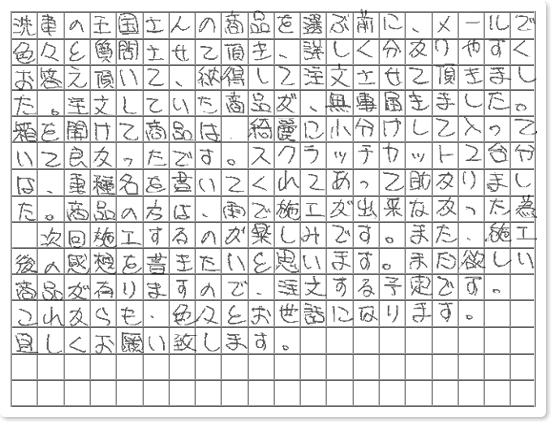 洗車の王国さんの商品を選ぶ前に、メールで
色々と質問させて頂き、詳しく分かりやすく
お答え頂いて、納得して注文させて頂きまし
た。注文していた商品が、無事届きました。
箱を開けて商品は、綺麗に小分けして入って
いて良かったです。スクラッチカット2台分
は、車種名を書いてくれてあって助かりまし
た。商品の方は、雨で施工が出来なかった為
次回施工するのが楽しみです。また、施工
後の感想を書きたいと思います。また欲しい
商品が有りますので、注文する予定です。
これからも、色々とお世話になります。
宜しくお願い致します。